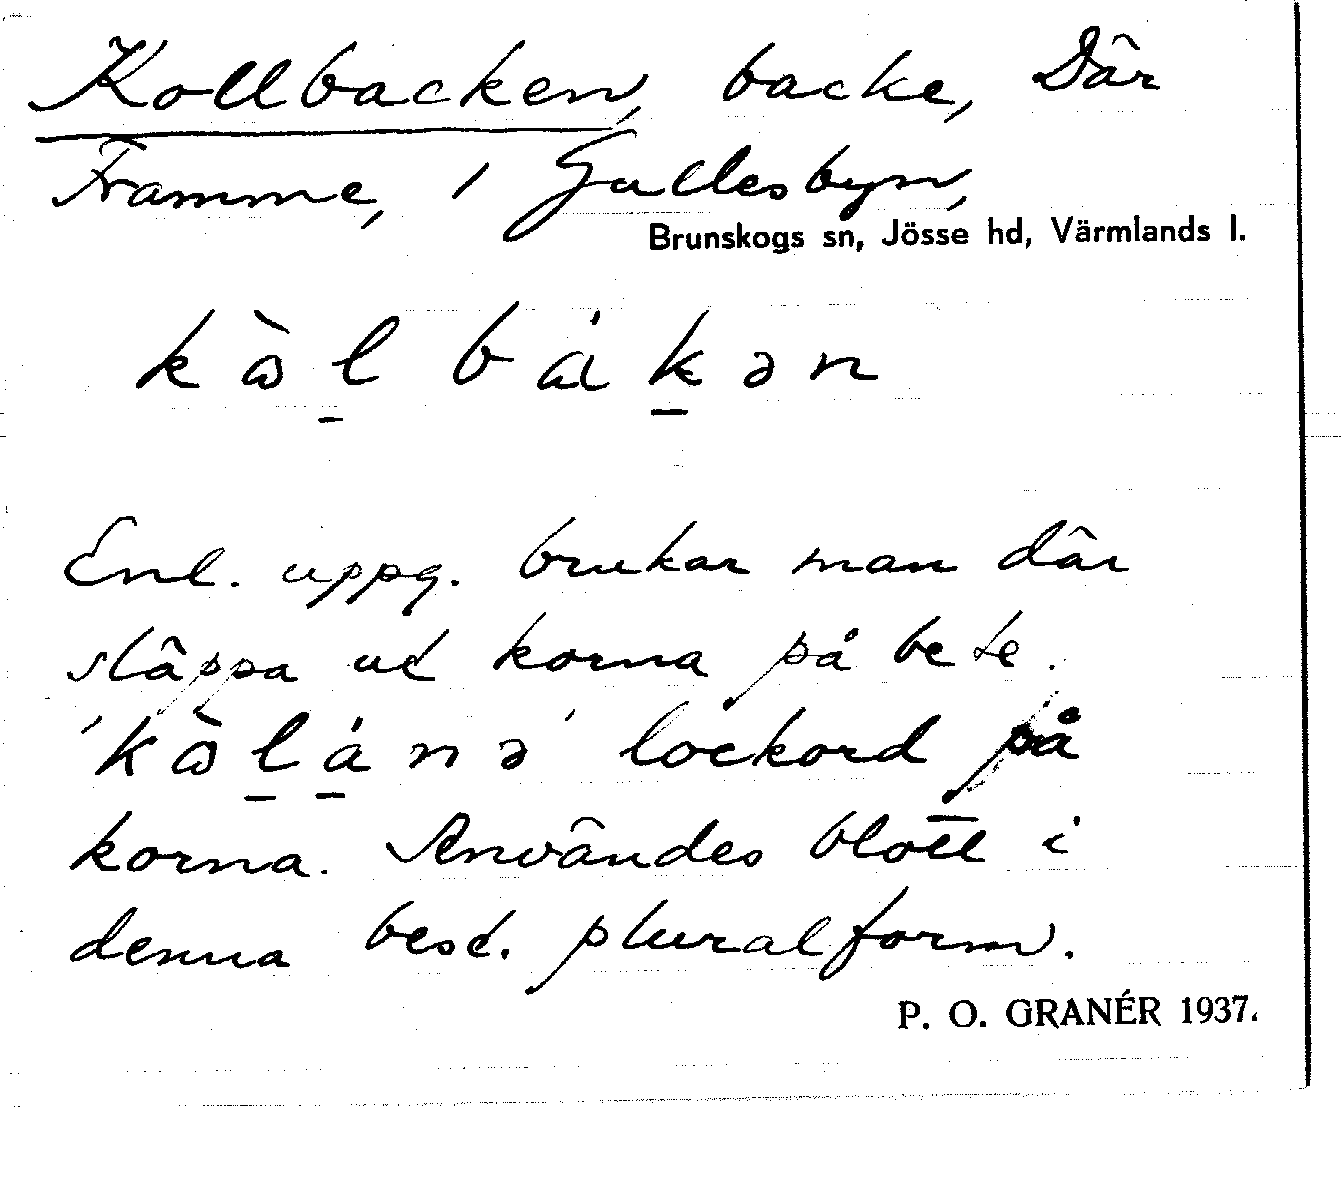 Kollbacken, backe, Där
Framme, i Gullesbyn,
Brunskogs sn, Jösse hd, Värmlands l.
kὼl̠ báḵən
Enl. uppg. brukar man där
släppa ut korna på bete.
'kὼl̠á̠nə' lockord på
korna. Användes blott i
denna best. pluralform.
P. O. GRANÉR 1937.